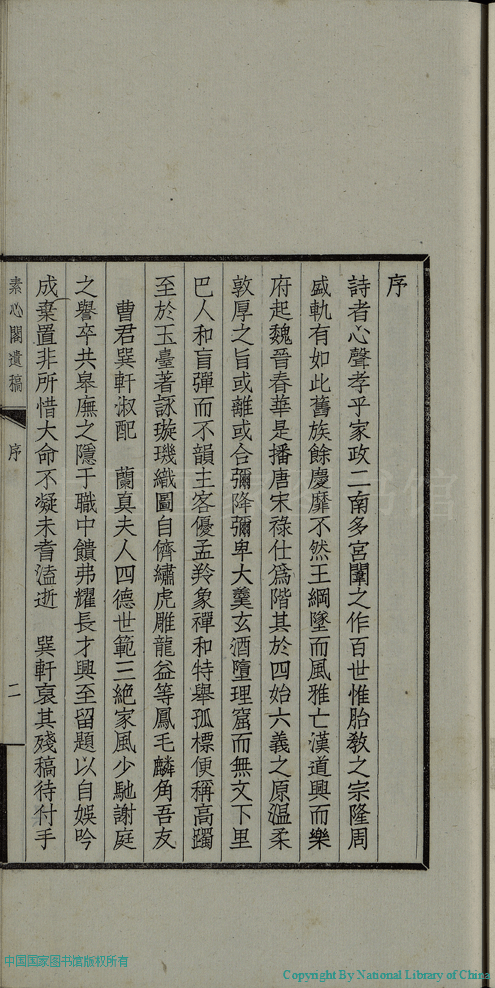 序
詩者心聲孝乎家政二南多宮闈之作百世惟胎教之宗隆周
盛軌有如此舊族餘慶靡不然王綱墜而風雅亡漢道興而樂
府起魏晉春華是播唐宋祿仕爲階其於四始六義之原溫柔
敦厚之旨或離或合彌降彌卑大羹玄酒墮理窟而無文下里
巴人和盲彈而不韻主客優孟羚象禪和特舉孤標便稱高躅
至於玉臺著詠璇璣織圖自儕繡虎雕龍益等鳳毛麟角吾友
曹君巽軒淑配 蘭真夫人四德世範三絕家風少馳謝庭
之譽卒共皋廡之隱于職中饋弗耀長才興至留題以自娛吟
成棄置非所惜大命不凝未耆溘逝 巽軒哀其殘稿待付手
素心閣遺稿 序 二
中国国家图书馆版权所有
Copyright By National Library of China